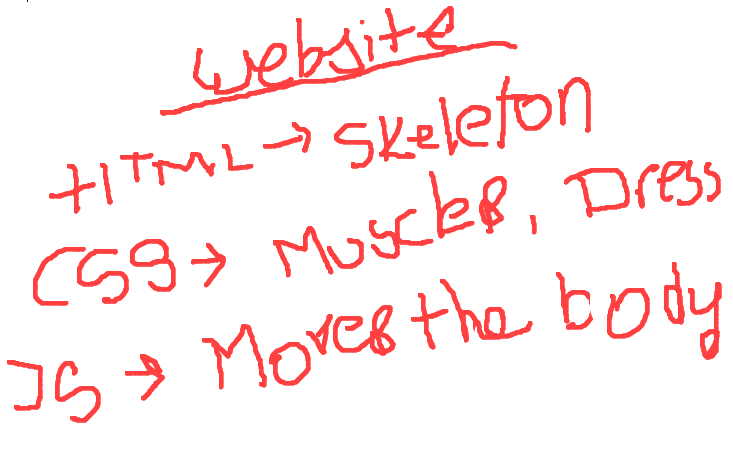 Website
HTML → Skeleton
CSS → Muscles, Dress
JS → Moves the body